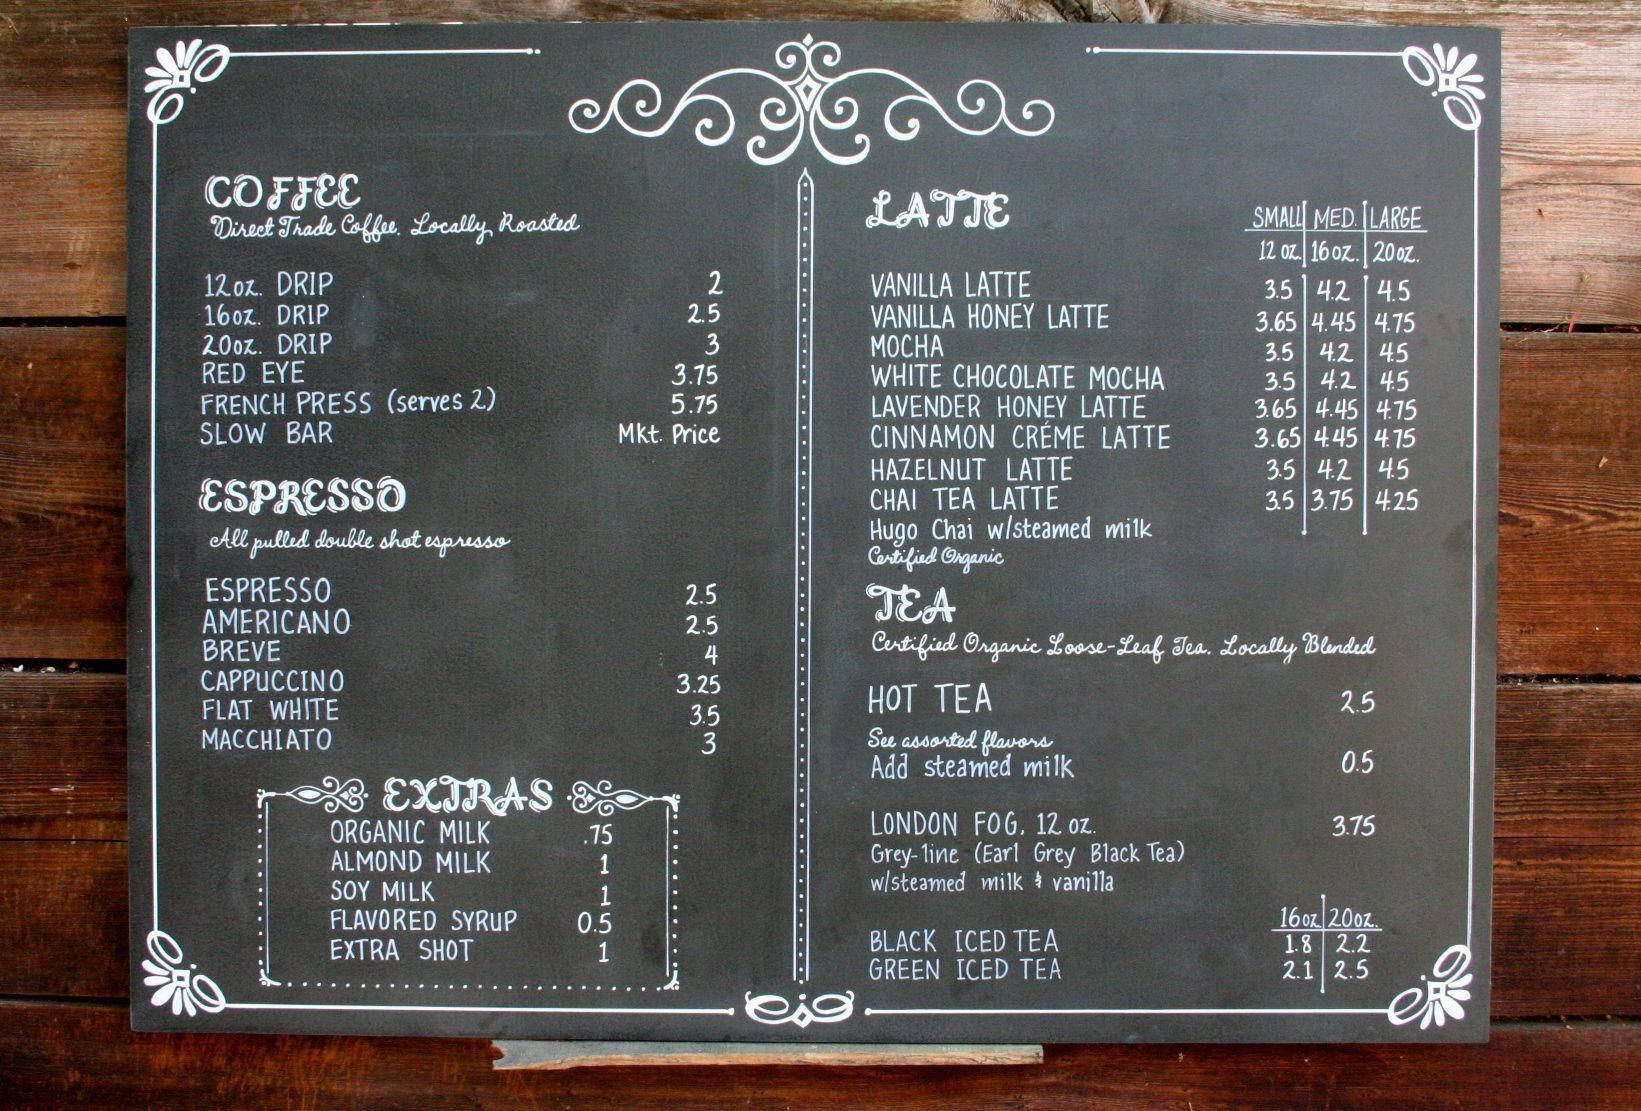 COFFEE
Direct Trade Coffee. Locally Roasted
12oz. DRIP 2
16oz. DRIP 2.5
20oz. DRIP 3
RED EYE 3.75
FRENCH PRESS (serves 2) 5.75
SLOW BAR Mkt. Price
ESPRESSO
All pulled double shot espresso
ESPRESSO 2.5
AMERICANO 2.5
BREVE 4
CAPPUCCINO 3.25
FLAT WHITE 3.5
MACCHIATO 3
EXTRAS
ORGANIC MILK .75
ALMOND MILK 1
SOY MILK 1
FLAVORED SYRUP 0.5
EXTRA SHOT 1
LATTE SMALL MED. LARGE
12 oz. 16 oz. 20 oz.
VANILLA LATTE 3.5 4.2 4.5
VANILLA HONEY LATTE 3.65 4.45 4.75
MOCHA 3.5 4.2 4.5
WHITE CHOCOLATE MOCHA 3.5 4.2 4.5
LAVENDER HONEY LATTE 3.65 4.45 4.75
CINNAMON CRÉME LATTE 3.65 4.45 4.75
HAZELNUT LATTE 3.5 4.2 4.5
CHAI TEA LATTE 3.5 3.75 4.25
Hugo Chai w/steamed milk
Certified Organic
TEA
Certified Organic Loose-Leaf Tea. Locally Blended
HOT TEA 2.5
See assorted flavors
Add steamed milk 0.5
LONDON FOG, 12 oz. 3.75
Grey-line (Earl Grey Black Tea)
w/steamed milk & vanilla
16oz 20oz.
BLACK ICED TEA 1.8 2.2
GREEN ICED TEA 2.1 2.5